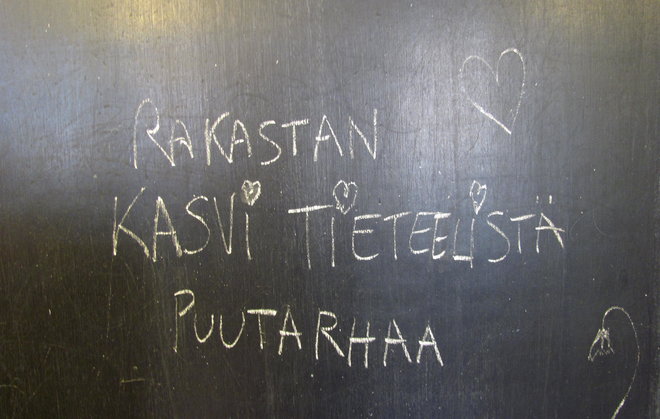 RAKASTAN
KASVI TIETEELISTÄ
PUUTARHAA